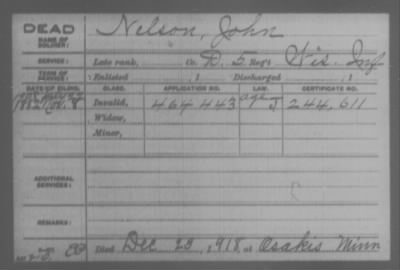 DEAD Nelson, John
NAME OF SOLDIER:
SERVICE: Late rank, Co. D. 5 Reg't Wis. Inf
TERM OF SERVICE: Enlisted , 1 Discharged , 1
DATE OF FILING. CLASS. APPLICATION NO. LAW. CERTIFICATE NO.
Invalid, 464 443 age J 244,611
Widow,
Minor,
ADDITIONAL SERVICES:
REMARKS:
Died Dec 23, 1918, at Osakis Minn